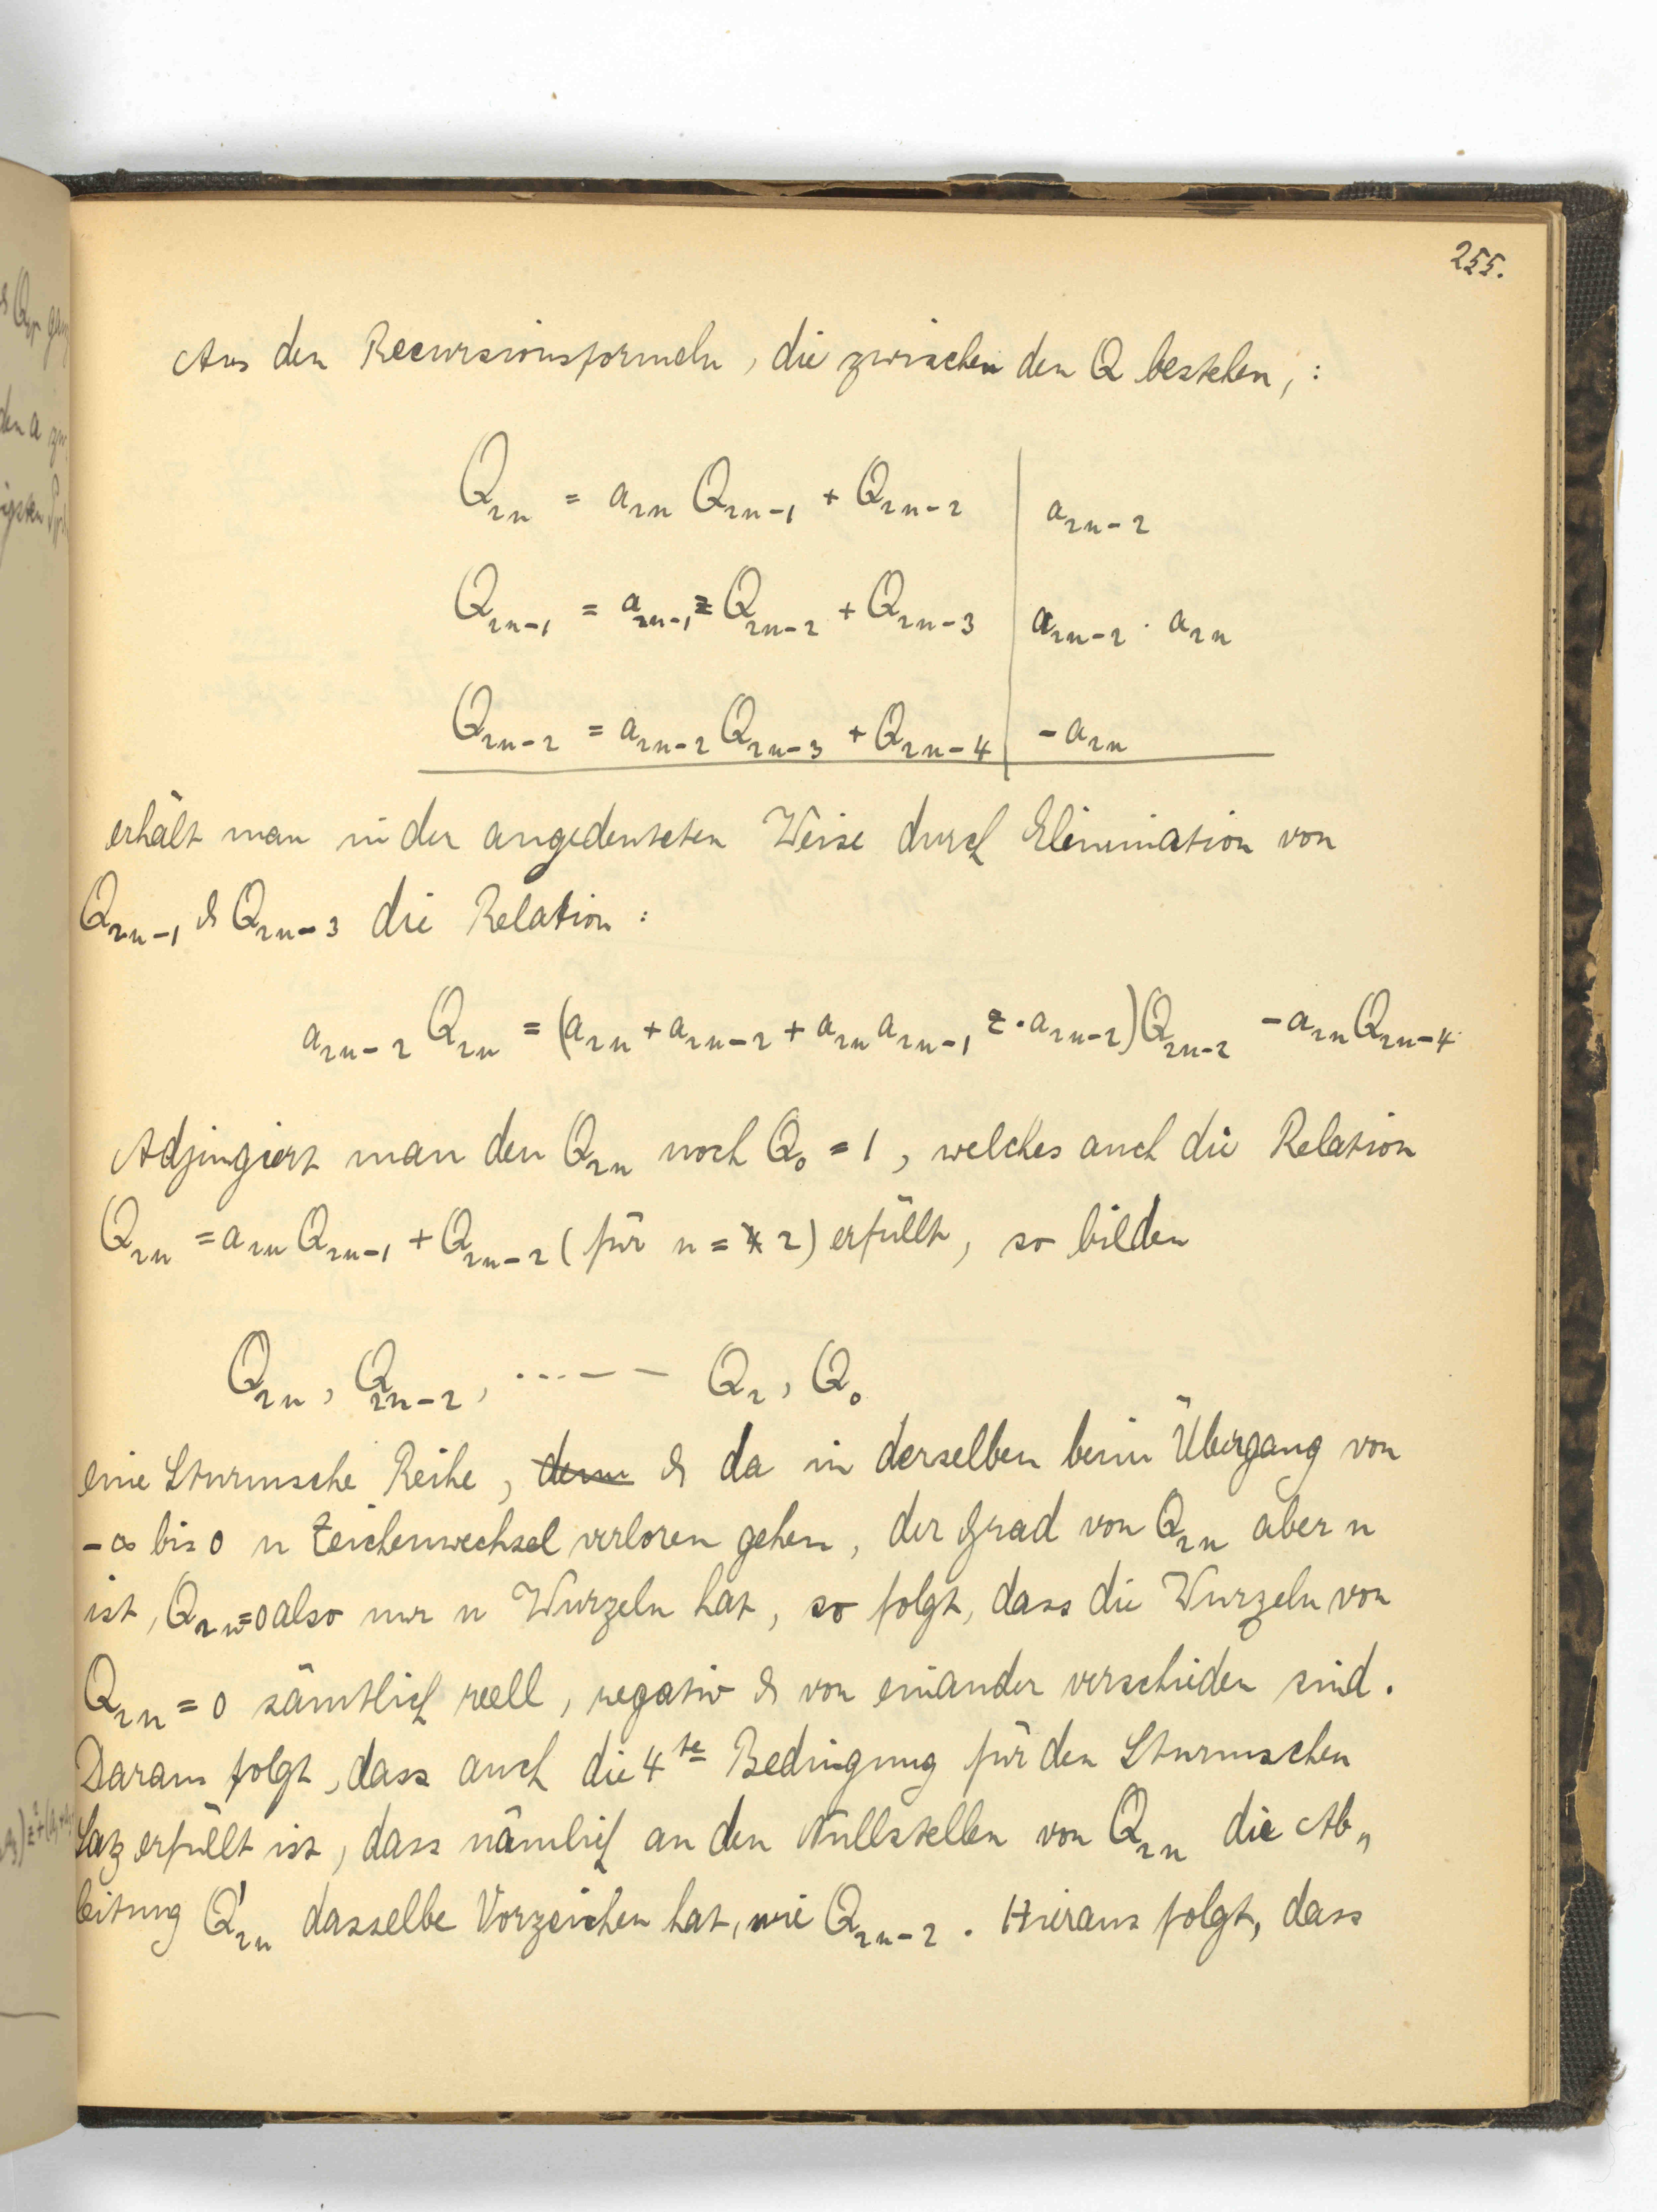 255.
Aus den Recursionsformeln, die zwischen den Q bestehen, :
Q₂ₙ = a₂ₙ Q₂ₙ₋₁ + Q₂ₙ₋₂ | a₂ₙ₋₂
Q₂ₙ₋₁ = a₂ₙ₋₁ z Q₂ₙ₋₂ + Q₂ₙ₋₃ | a₂ₙ₋₂ · a₂ₙ
Q₂ₙ₋₂ = a₂ₙ₋₂ Q₂ₙ₋₃ + Q₂ₙ₋₄ | - a₂ₙ
erhält man in der angedeuteten Weise durch Elimination von
Q₂ₙ₋₁ & Q₂ₙ₋₃ die Relation :
a₂ₙ₋₂ Q₂ₙ = (a₂ₙ + a₂ₙ₋₂ + a₂ₙ a₂ₙ₋₁ z · a₂ₙ₋₂) Q₂ₙ₋₂ - a₂ₙ Q₂ₙ₋₄.
Adjungiert man den Q₂ₙ noch Q₀ = 1, welches auch die Relation
Q₂ₙ = a₂ₙ Q₂ₙ₋₁ + Q₂ₙ₋₂ (für n = 2) erfüllt, so bilden
Q₂ₙ, Q₂ₙ₋₂, ....-- Q₂, Q₀
eine Sturmsche Reihe, denn & da in derselben beim Übergang von
-∞ bis 0 n Zeichenwechsel verloren gehen, der Grad von Q₂ₙ aber n
ist, Q₂ₙ=0 also nur n Wurzeln hat, so folgt, dass die Wurzeln von
Q₂ₙ = 0 sämtlich reell, negativ & von einander verschieden sind.
Daraus folgt, dass auch die 4te Bedingung für den Sturmschen
Satz erfüllt ist, dass nämlich an den Nullstellen von Q₂ₙ die Ab„
leitung Q'₂ₙ dasselbe Vorzeichen hat, wie Q₂ₙ₋₂. Hieraus folgt, dass